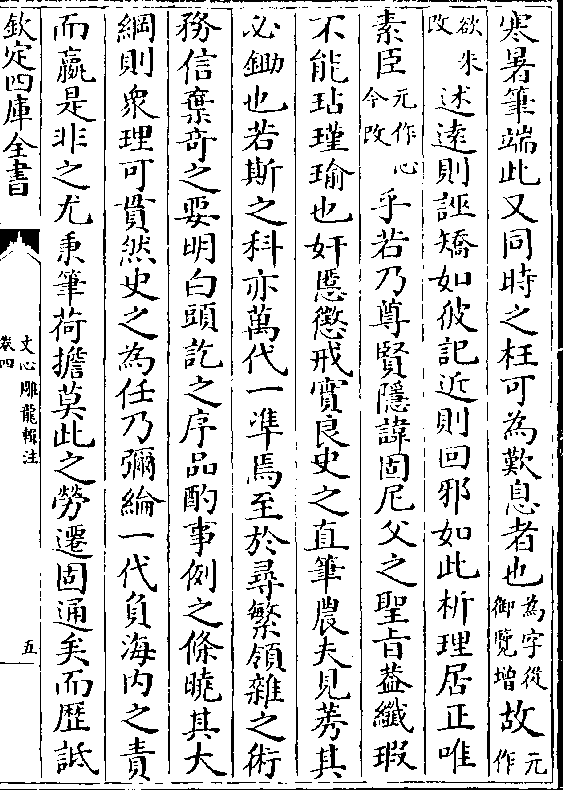 寒暑筆端此又同時之枉可為歎息者也為字從御覽增故元作
欲朱改述遠則誣矯如彼記近則回邪如此析理居正唯
素臣元作心今改乎若乃尊賢隱諱固尼父之聖旨葢纖瑕
不能玷瑾瑜也奸慝懲戒實良史之直筆農夫見莠其
必鋤也若斯之科亦萬代一準焉至於尋繁領雜之術
務信棄奇之要明白頭訖之序品酌事例之條曉其大
綱則衆理可貫然史之為任乃彌綸一代負海內之責
而贏是非之尤秉筆荷擔莫此之勞遷固通矣而歴詆
欽定四庫全書
文心雕龍輯注
卷四
五